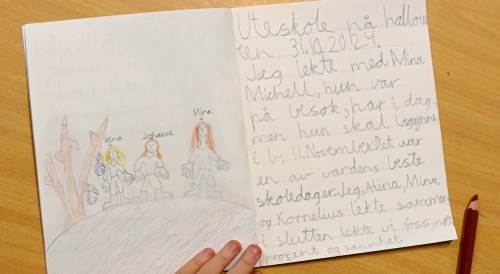 Mina
Johanne
Uteskole på hallow
en 31.10.2024.
Jeg lekte med Mina
Michell, hun var
på besøk, her i dag,
men hun skal begynne
i 11. November Det var
en av verdens beste
skoledager. Jeg, Alina, Mina
og Kornelius lekte sammen
i slutten lekte vi
og sannhet.